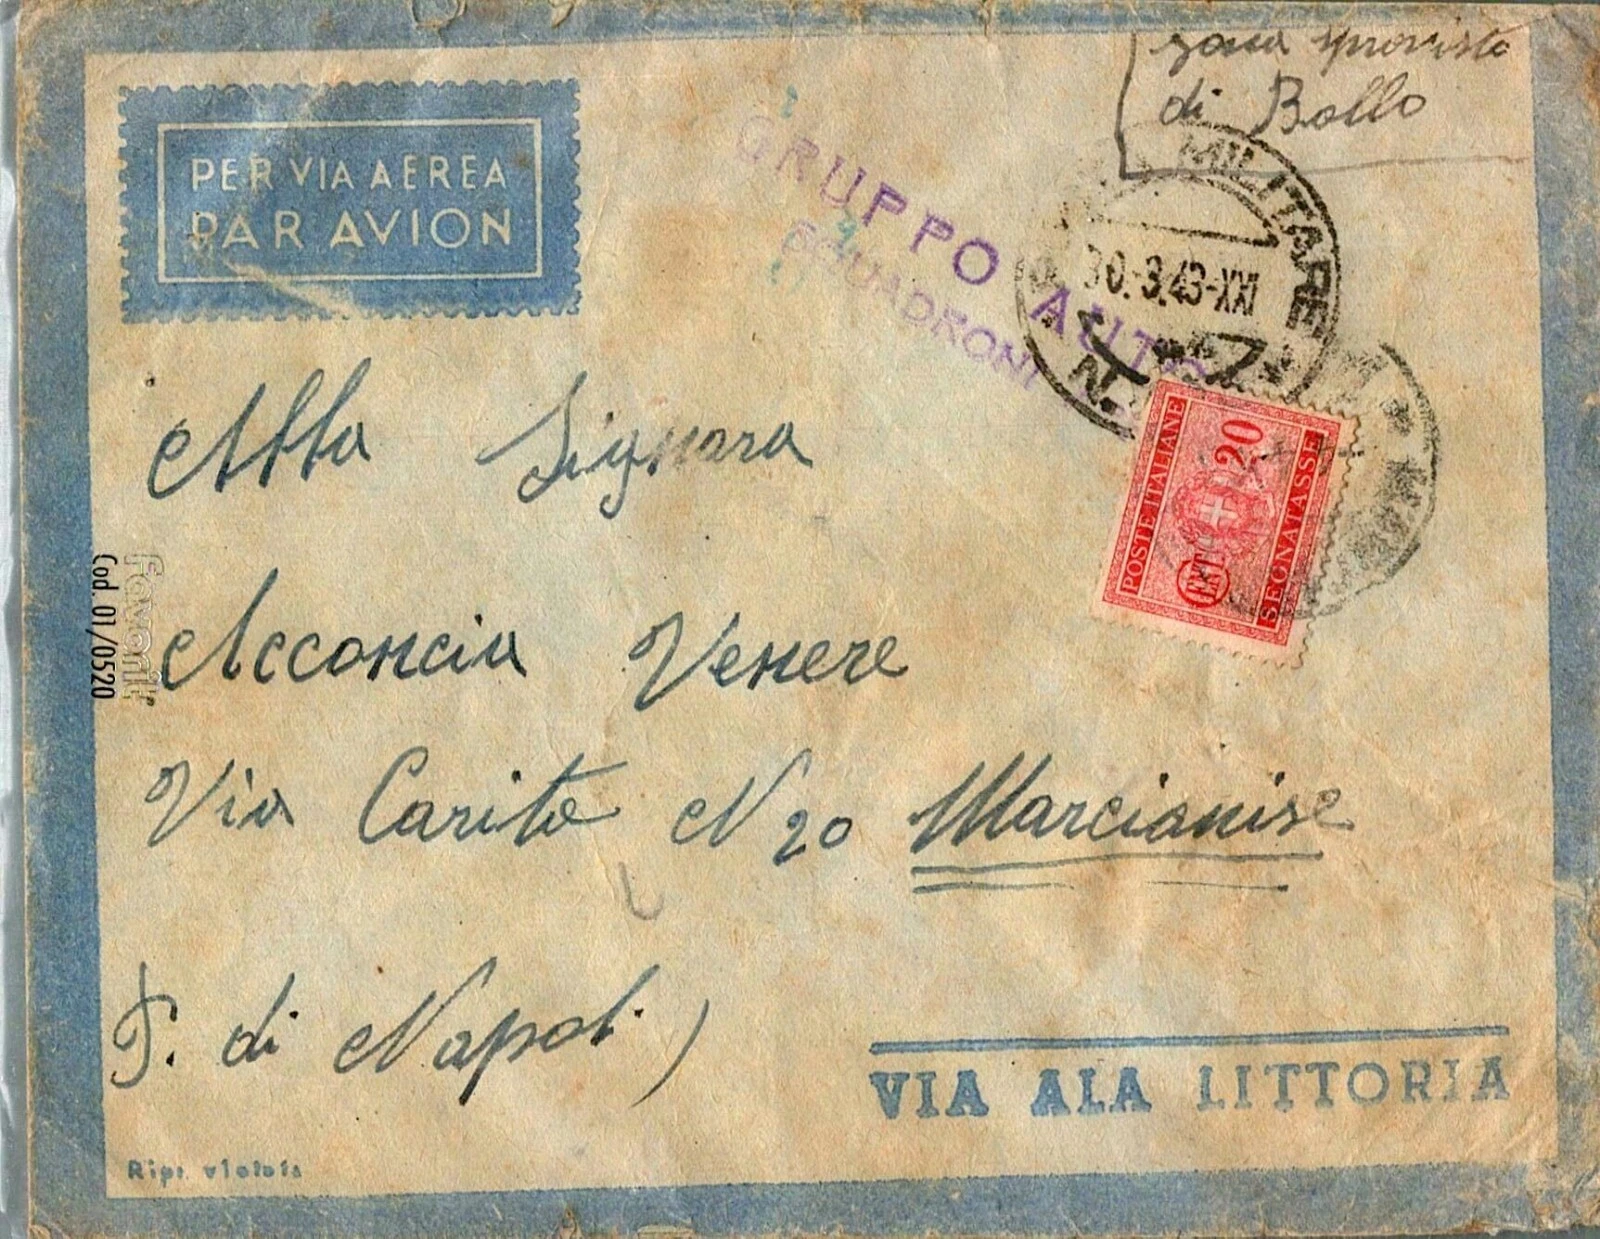 zona sprovista
di Bollo
PER VIA AEREA
PAR AVION
GRUPPO AUTO
SQUADRONI
MILITARE
30.3.43-XXI
N.
POSTE ITALIANE
20
CENT.
SEGNATASSE
Alla Signora
Acconcia Venere
Via Carita N 20 Marcianise
P. di Napoli)
Favorit
Cod. 01/0520
VIA ALA LITTORIA
Ripr. vietata